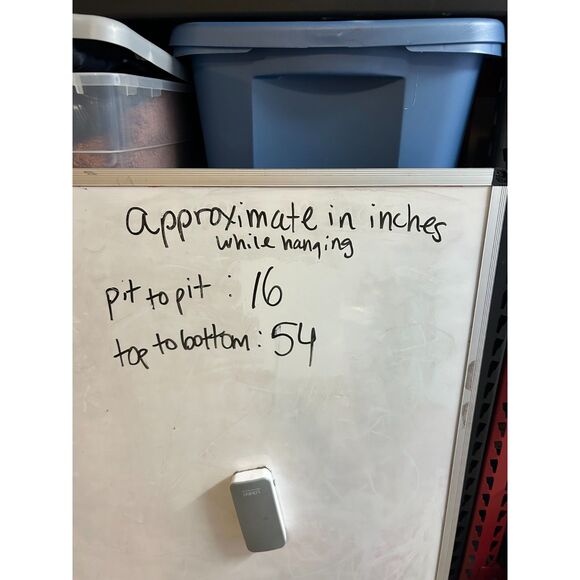 approximate in inches
while hanging
pit to pit : 16
top to bottom : 54